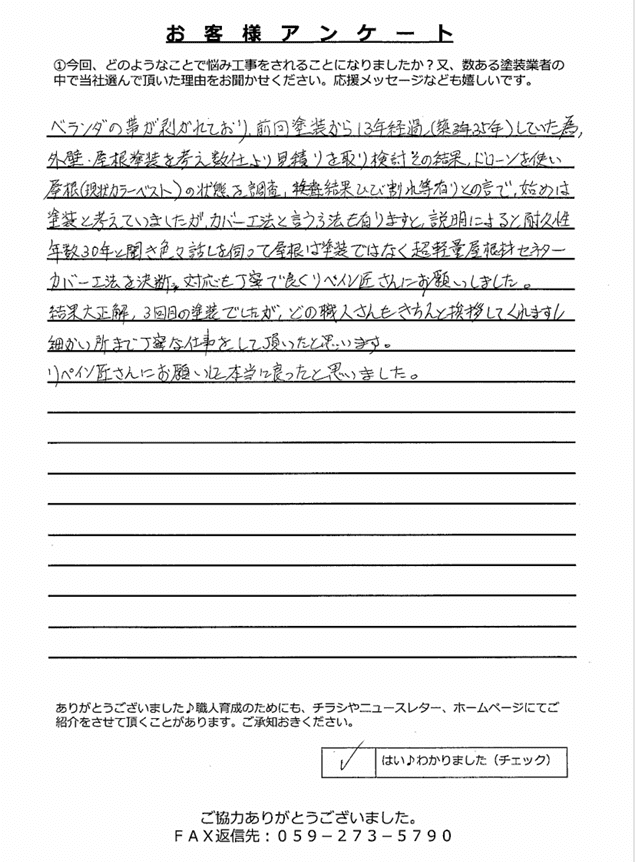 お客様アンケート
①今回、どのようなことで悩み工事をされることになりましたか？又、数ある塗装業者の
中で当社選んで頂いた理由をお聞かせください。応援メッセージなども嬉しいです。
ベランダの帯が剥がれており、前回塗装から13年経過(築25年)していた為、
外壁・屋根塗装を考え数社より見積りを取り検討その結果、ドローンを使い
屋根(現状カラーベスト)の状態を調査、結果ひび割れ等有りとの言で、始めは
塗装と考えていましたが、カバー工法と言う方法も有りますと、説明によると耐久性
年数30年と聞き色々話しを伺って屋根は塗装ではなく超軽量屋根材セネター
カバー工法を決断。対応も丁寧で良くリペイン匠さんにお願いしました。
結果大正解、3回目の塗装でしたが、どの職人さんもきちんと挨拶してくれますし
細かい所まで丁寧な仕事をして頂いたと思います。
リペイン匠さんにお願いして本当に良ったと思いました。
ありがとうございました♪職人育成のためにも、チラシやニュースレター、ホームページにてご
紹介をさせて頂くことがあります。ご承知おきください。
✓ はい♪わかりました（チェック）
ご協力ありがとうございました。
ＦＡＸ返信先：０５９－２７３－５７９０